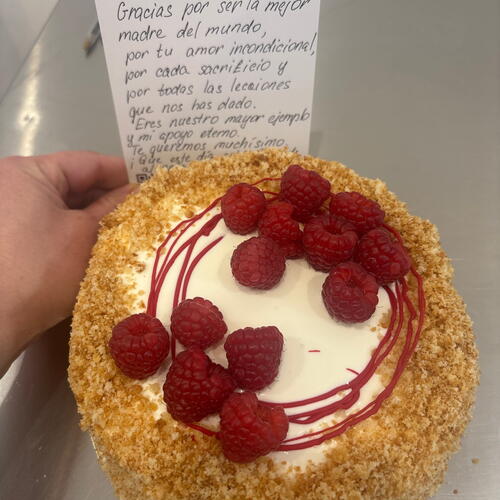 Gracias por ser la mejor
madre del mundo,
por tu amor incondicional,
por cada sacrificio y
por todas las lecciones
que nos has dado.
Eres nuestro mayor ejemplo
y mi apoyo eterno.
Te queremos muchísimo.
¡Que este día